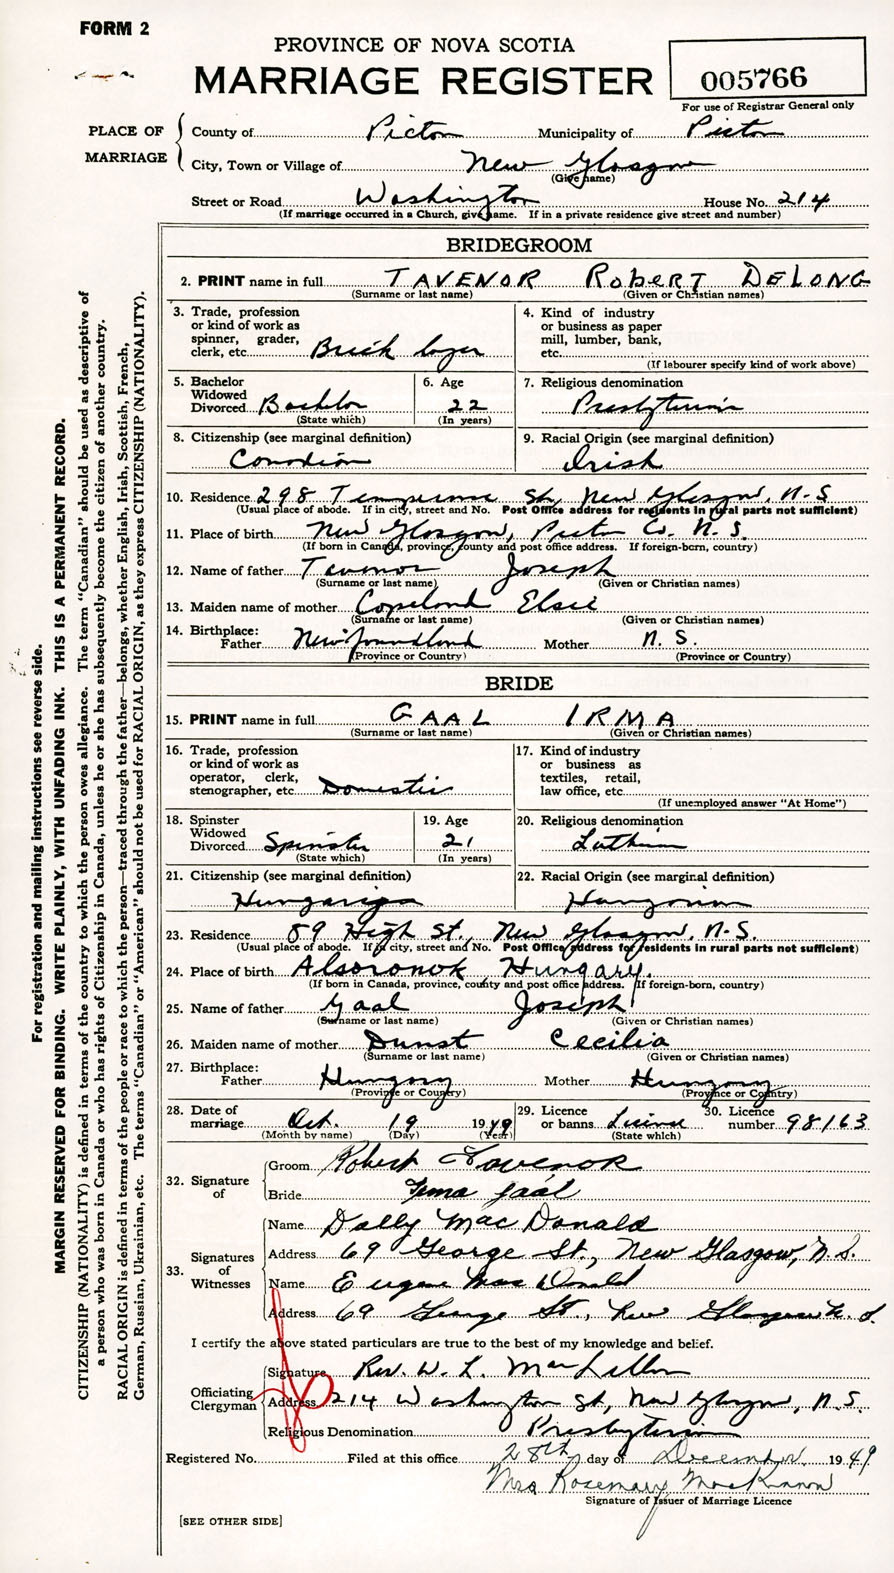 FORM 2
PROVINCE OF NOVA SCOTIA
MARRIAGE REGISTER
005766
For use of Registrar General only
PLACE OF MARRIAGE
County of Pictou Municipality of Pictou
City, Town or Village of New Glasgow
(Give name)
Street or Road Washington House No. 214
(If marriage occurred in a Church, give name. If in a private residence give street and number)
BRIDEGROOM
2. PRINT name in full TAVENOR ROBERT DELONG
(Surname or last name) (Given or Christian names)
3. Trade, profession or kind of work as spinner, grader, clerk, etc. Brick layer
4. Kind of industry or business as paper mill, lumber, bank, etc.
(If labourer specify kind of work above)
5. Bachelor Widowed Divorced Bachelor
(State which)
6. Age 22
(In years)
7. Religious denomination
Presbyterian
8. Citizenship (see marginal definition)
Canadian
9. Racial Origin (see marginal definition)
Irish
10. Residence 298 Temperance St, New Glasgow, N-S
(Usual place of abode. If in city, street and No. Post Office address for residents in rural parts not sufficient)
11. Place of birth New Glasgow, Pictou Co. N. S.
(If born in Canada, province, county and post office address. If foreign-born, country)
12. Name of father Tavenor Joseph
(Surname or last name) (Given or Christian names)
13. Maiden name of mother Copeland Elsie
(Surname or last name) (Given or Christian names)
14. Birthplace:
Father Newfoundland Mother N. S.
(Province or Country) (Province or Country)
BRIDE
15. PRINT name in full GAAL IRMA
(Surname or last name) (Given or Christian names)
16. Trade, profession or kind of work as operator, clerk, stenographer, etc. Domestic
17. Kind of industry or business as textiles, retail, law office, etc.
(If unemployed answer "At Home")
18. Spinster Widowed Divorced Spinster
(State which)
19. Age 21
(In years)
20. Religious denomination
21. Citizenship (see marginal definition)
Hungarian
22. Racial Origin (see marginal definition)
Hungarian
23. Residence 89 High St., New Glasgow, N-S.
(Usual place of abode. If in city, street and No. Post Office address for residents in rural parts not sufficient)
24. Place of birth Alsoronok Hungary.
(If born in Canada, province, county and post office address. If foreign-born, country)
25. Name of father Gaal Joseph
(Surname or last name) (Given or Christian names)
26. Maiden name of mother Dunst Cecilia
(Surname or last name) (Given or Christian names)
27. Birthplace:
Father Hungary Mother Hungary
(Province or Country) (Province or Country)
28. Date of marriage Oct. 19 1949
(Month by name) (Day) (Year)
29. Licence or banns License
(State which)
30. Licence number 98163
32. Signature of
Groom Robert Tavenor
Bride Irma Gaál
33. Signatures of Witnesses
Name Dolly MacDonald
Address 69 George St., New Glasgow, N.S.
Name Eugene MacDonald
Address 69 George St., New Glasgow N. S.
I certify the above stated particulars are true to the best of my knowledge and belief.
Officiating Clergyman
Signature Rev. W. L. MacLellan
Address 214 Washington St, New Glasgow, N.S.
Religious Denomination Presbyterian
Registered No. Filed at this office 28th day of December 1949
Mrs Rosemary MacKinnon
Signature of Issuer of Marriage Licence
[SEE OTHER SIDE]
For registration and mailing instructions see reverse side.
MARGIN RESERVED FOR BINDING. WRITE PLAINLY, WITH UNFADING INK. THIS IS A PERMANENT RECORD.
CITIZENSHIP (NATIONALITY) is defined in terms of the country to which the person owes allegiance. The term "Canadian" should be used as descriptive of
a person who was born in Canada or who has rights of Citizenship in Canada, unless he or she has subsequently become the citizen of another country.
RACIAL ORIGIN is defined in terms of the people or race to which the person—traced through the father—belongs, whether English, Irish, Scottish, French,
German, Russian, Ukrainian, etc. The terms "Canadian" or "American" should not be used for RACIAL ORIGIN, as they express CITIZENSHIP (NATIONALITY).